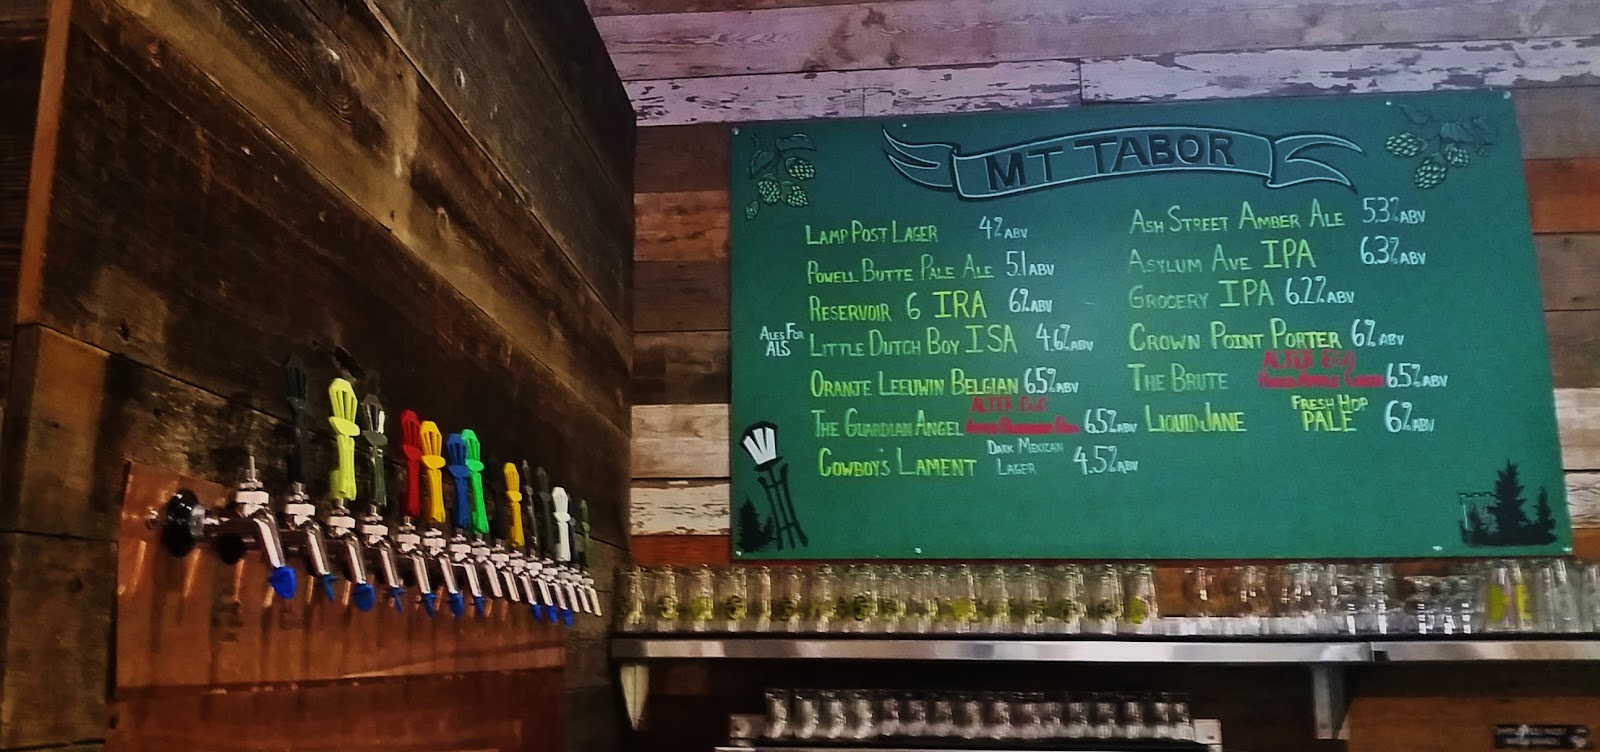 MT TABOR
LAMP POST LAGER 4% ABV
POWELL BUTTE PALE ALE 5.1 ABV
RESERVOIR 6 IRA 6% ABV
ALES FOR
ALS
LITTLE DUTCH BOY ISA 4.6% ABV
ORANJE LEEUWIN BELGIAN 6.5% ABV
ALTER EGO
THE GUARDIAN ANGEL 6.5% ABV
COWBOY'S LAMENT DARK MEXICAN
LAGER 4.5% ABV
ASH STREET AMBER ALE 5.3% ABV
ASYLUM AVE IPA 6.3% ABV
GROCERY IPA 6.2% ABV
CROWN POINT PORTER 6% ABV
ALTER EGO
THE BRUTE 6.5% ABV
LIQUID JANE FRESH HOP
PALE 6% ABV